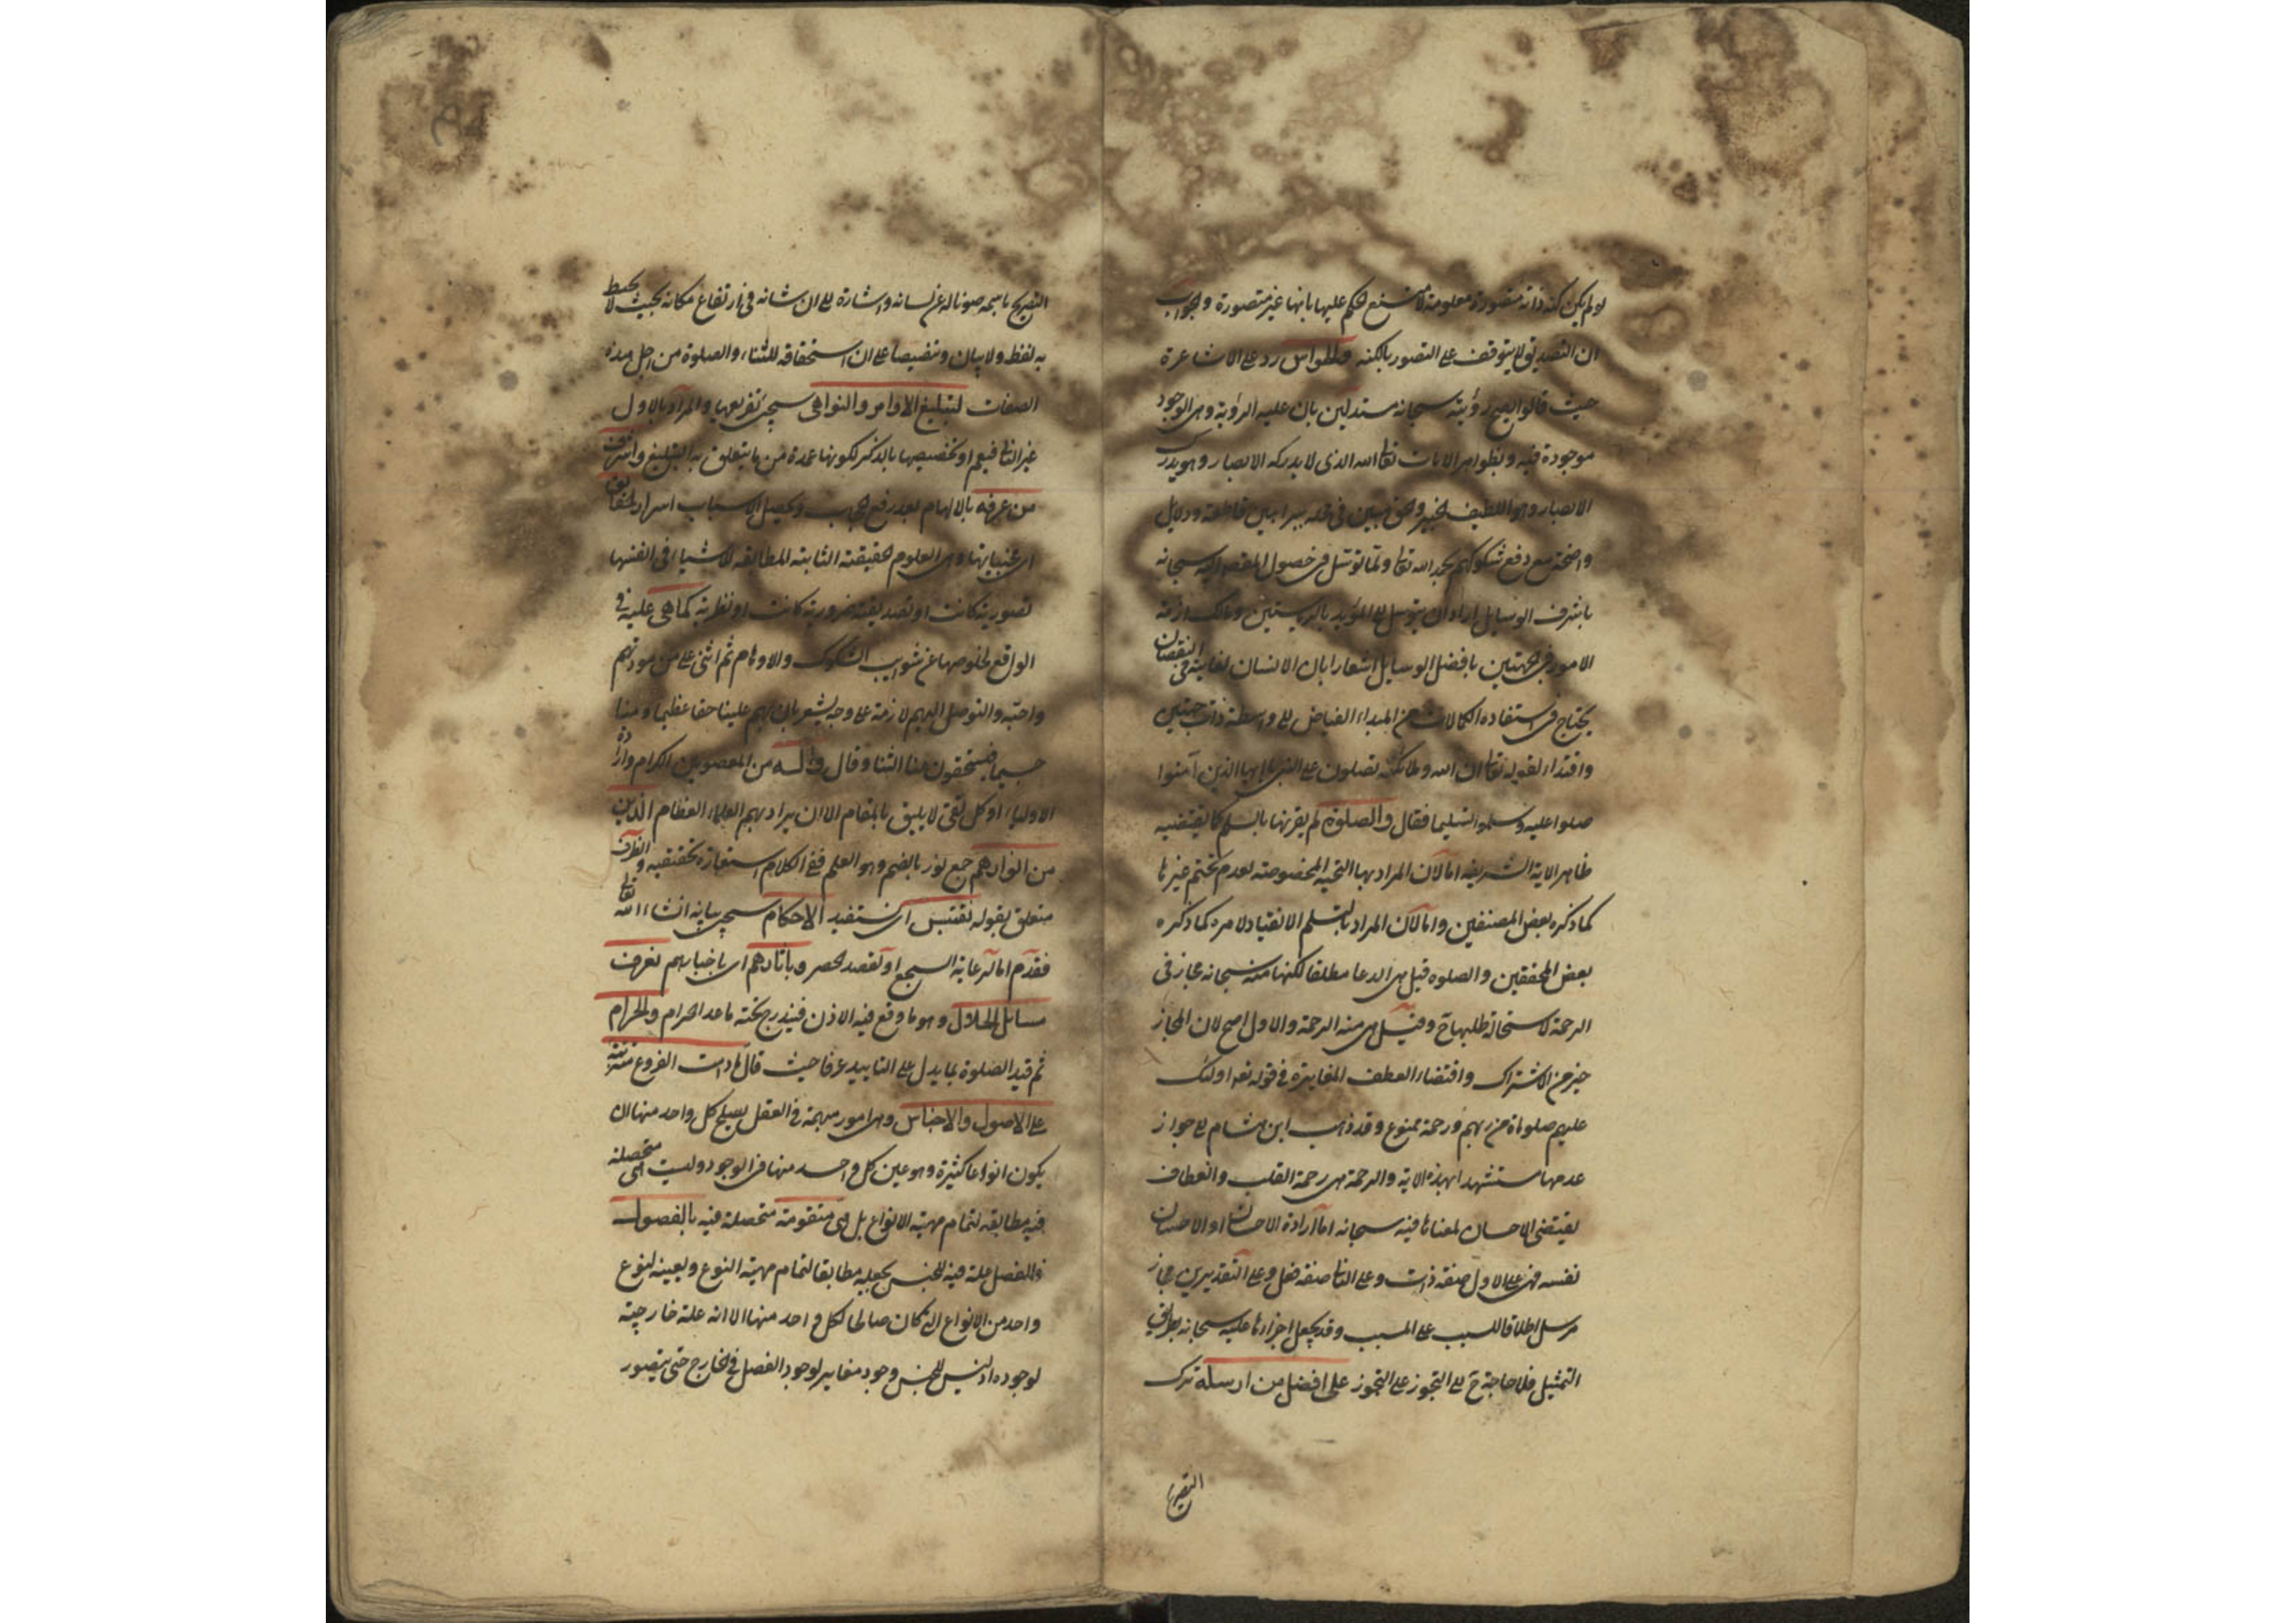 لو لم يكن كنه ذاته متصورة معلومة لامتنع الحكم عليها بانها غير متصورة والجواب
ان التصديق لا يتوقف على التصور بالكنه رد على الاشاعرة
حيث قالوا يصح رؤيته سبحانه مستدلين بان علية الرؤية وهى الوجود
موجودة فيه وبظواهر الايات تعالى الله الذى لا يدركه الابصار وهو يدرك
الابصار وهو اللطيف الخبير والحق مبين فى محله ببراهين قاطعة ودلايل
واضحة مع دفع شكوكهم بحمد الله تعالى ولما توسل فى حصول اليه سبحانه
باشرف الوسايل اراد ان يتوسل الى المؤيد بالرياستين ومالك ازمة
الامور فى الجهتين بافضل الوسايل اشعارا بان الانسان لغايته فى النقصان
يحتاج فى استفادة الكمالات من المبداء الفياض الى واسطة ذات جهتين
واقتداء لقوله تعالى ان الله وملائكته يصلون على النبى يا ايها الذين آمنوا
صلوا عليه وسلموا تسليما فقال والصلوة لم يقرنها بالسلم كما يقتضيه
ظاهر الاية الشريفة اما لان المراد بها التحية المخصوصة لعدم غيرها
كما ذكره بعض المصنفين واما لان المراد بالتسلم الانقياد لامره كما ذكره
بعض المحققين والصلوه قيل هى الدعا مطلقا لكنها منه سبحانه مجاز فى
الرحمة لاستحالة طلبها ح وقيل هى منه الرحمة والاول اصح لان المجاز
خير من الاشتراك واقتضاء العطف المغايرة فى قوله تعه اولئك
عليهم صلوات من ربهم ورحمة ممنوع وقد ذهب ابن هشام الى جواز
عدمها مستشهدا بهذه الاية والرحمة هى رحمة القلب وانعطاف
يقتضى الاحسان لمعناها فيه سبحانه اما ارادة الاحسان او الاحسان
نفسه فهى على الاول صفة ذات وعلى الثانى صفة فعل وعلى التقديرين مجاز
مرسل اطلاقا للسبب على المسبب وقد يجعل اجراءها عليه سبحانه بطريق
التمثيل فلا حاجة ح الى التجوز على التجوز على افضل من ارسله ترك
التصريح
التصريح باسمه صونا له عن لسانه واشارة الى ان شانه فى ارتفاع مكانه بحيث لا يحيط
به لفظ ولا بيان وتنصيصا على ان استحقاقه للثناء والصلوة من اجل هذه
الصفات لتبليغ الاوامر والنواهى سيجئ تعريفها والمراد بالاول
غير الثانى فيعم او تخصيصها بالذكر لكونها عمدة من ما يتعلق به التبليغ واشرف
من عرفه بالالهام بعد رفع الحجب وتحصيل الاسباب اسرار الحقايق
اى خبيئاتها وهى العلوم الحقيقية الثابتة المطابقة للاشياء فى انفسها
تصورية كانت او تصديقية ضرورية كانت او نظرية كما هى عليه فى
الواقع لخلوصها عن شوايب الشكوك والاوهام ثم اثنى على من مودتهم
واجبة والتوصل اليهم لازمة على وجه يشعر بان لهم علينا حقا عظيما ومنا
جسيما فيستحقون منا الثنا وقال وآله من المعصومين الكرام وارادة
الاولياء او كل تقى لا يليق بالمقام الا ان يراد بهم العلماء العظام الذين
من انوارهم جمع نور بالضم وهو العلم ففى الكلام استعارة تحقيقية والظرف
متعلق بقوله نقتبس اى نستفيد الاحكام سيجئ بيانه انشاء الله تعالى
فقدم اما لرعاية السجع او لقصد الحصر وبآثارهم اى باخبارهم نعرف
مسائل الحلال وهو ما وقع فيه الاذن فيندرج تحته ما عدا الحرام والحرام
ثم قيد الصلوة بما يدل على التابيد عرفا حيث قال ما دامت الفروع مترتبة
على الاصول والاجناس وهى امور مبهمة فى العقل يصلح كل واحد منها ان
يكون انواعا كثيرة وهو عين كل واحد منها فى الوجود وليست هى متحصلة
فيه مطابقة لتمام مهية الانواع بل هى متقومة متحصلة فيه بالفصول
فالفصل علة فيه للجنس يجعله مطابقا لتمام مهية النوع ويعينه لنوع
واحد من الانواع التى كان صالحا لكل واحد منها الا انه علة خارجية
لوجوده اذ ليس للجنس وجود مغاير لوجود الفصل فى الخارج حتى يتصور